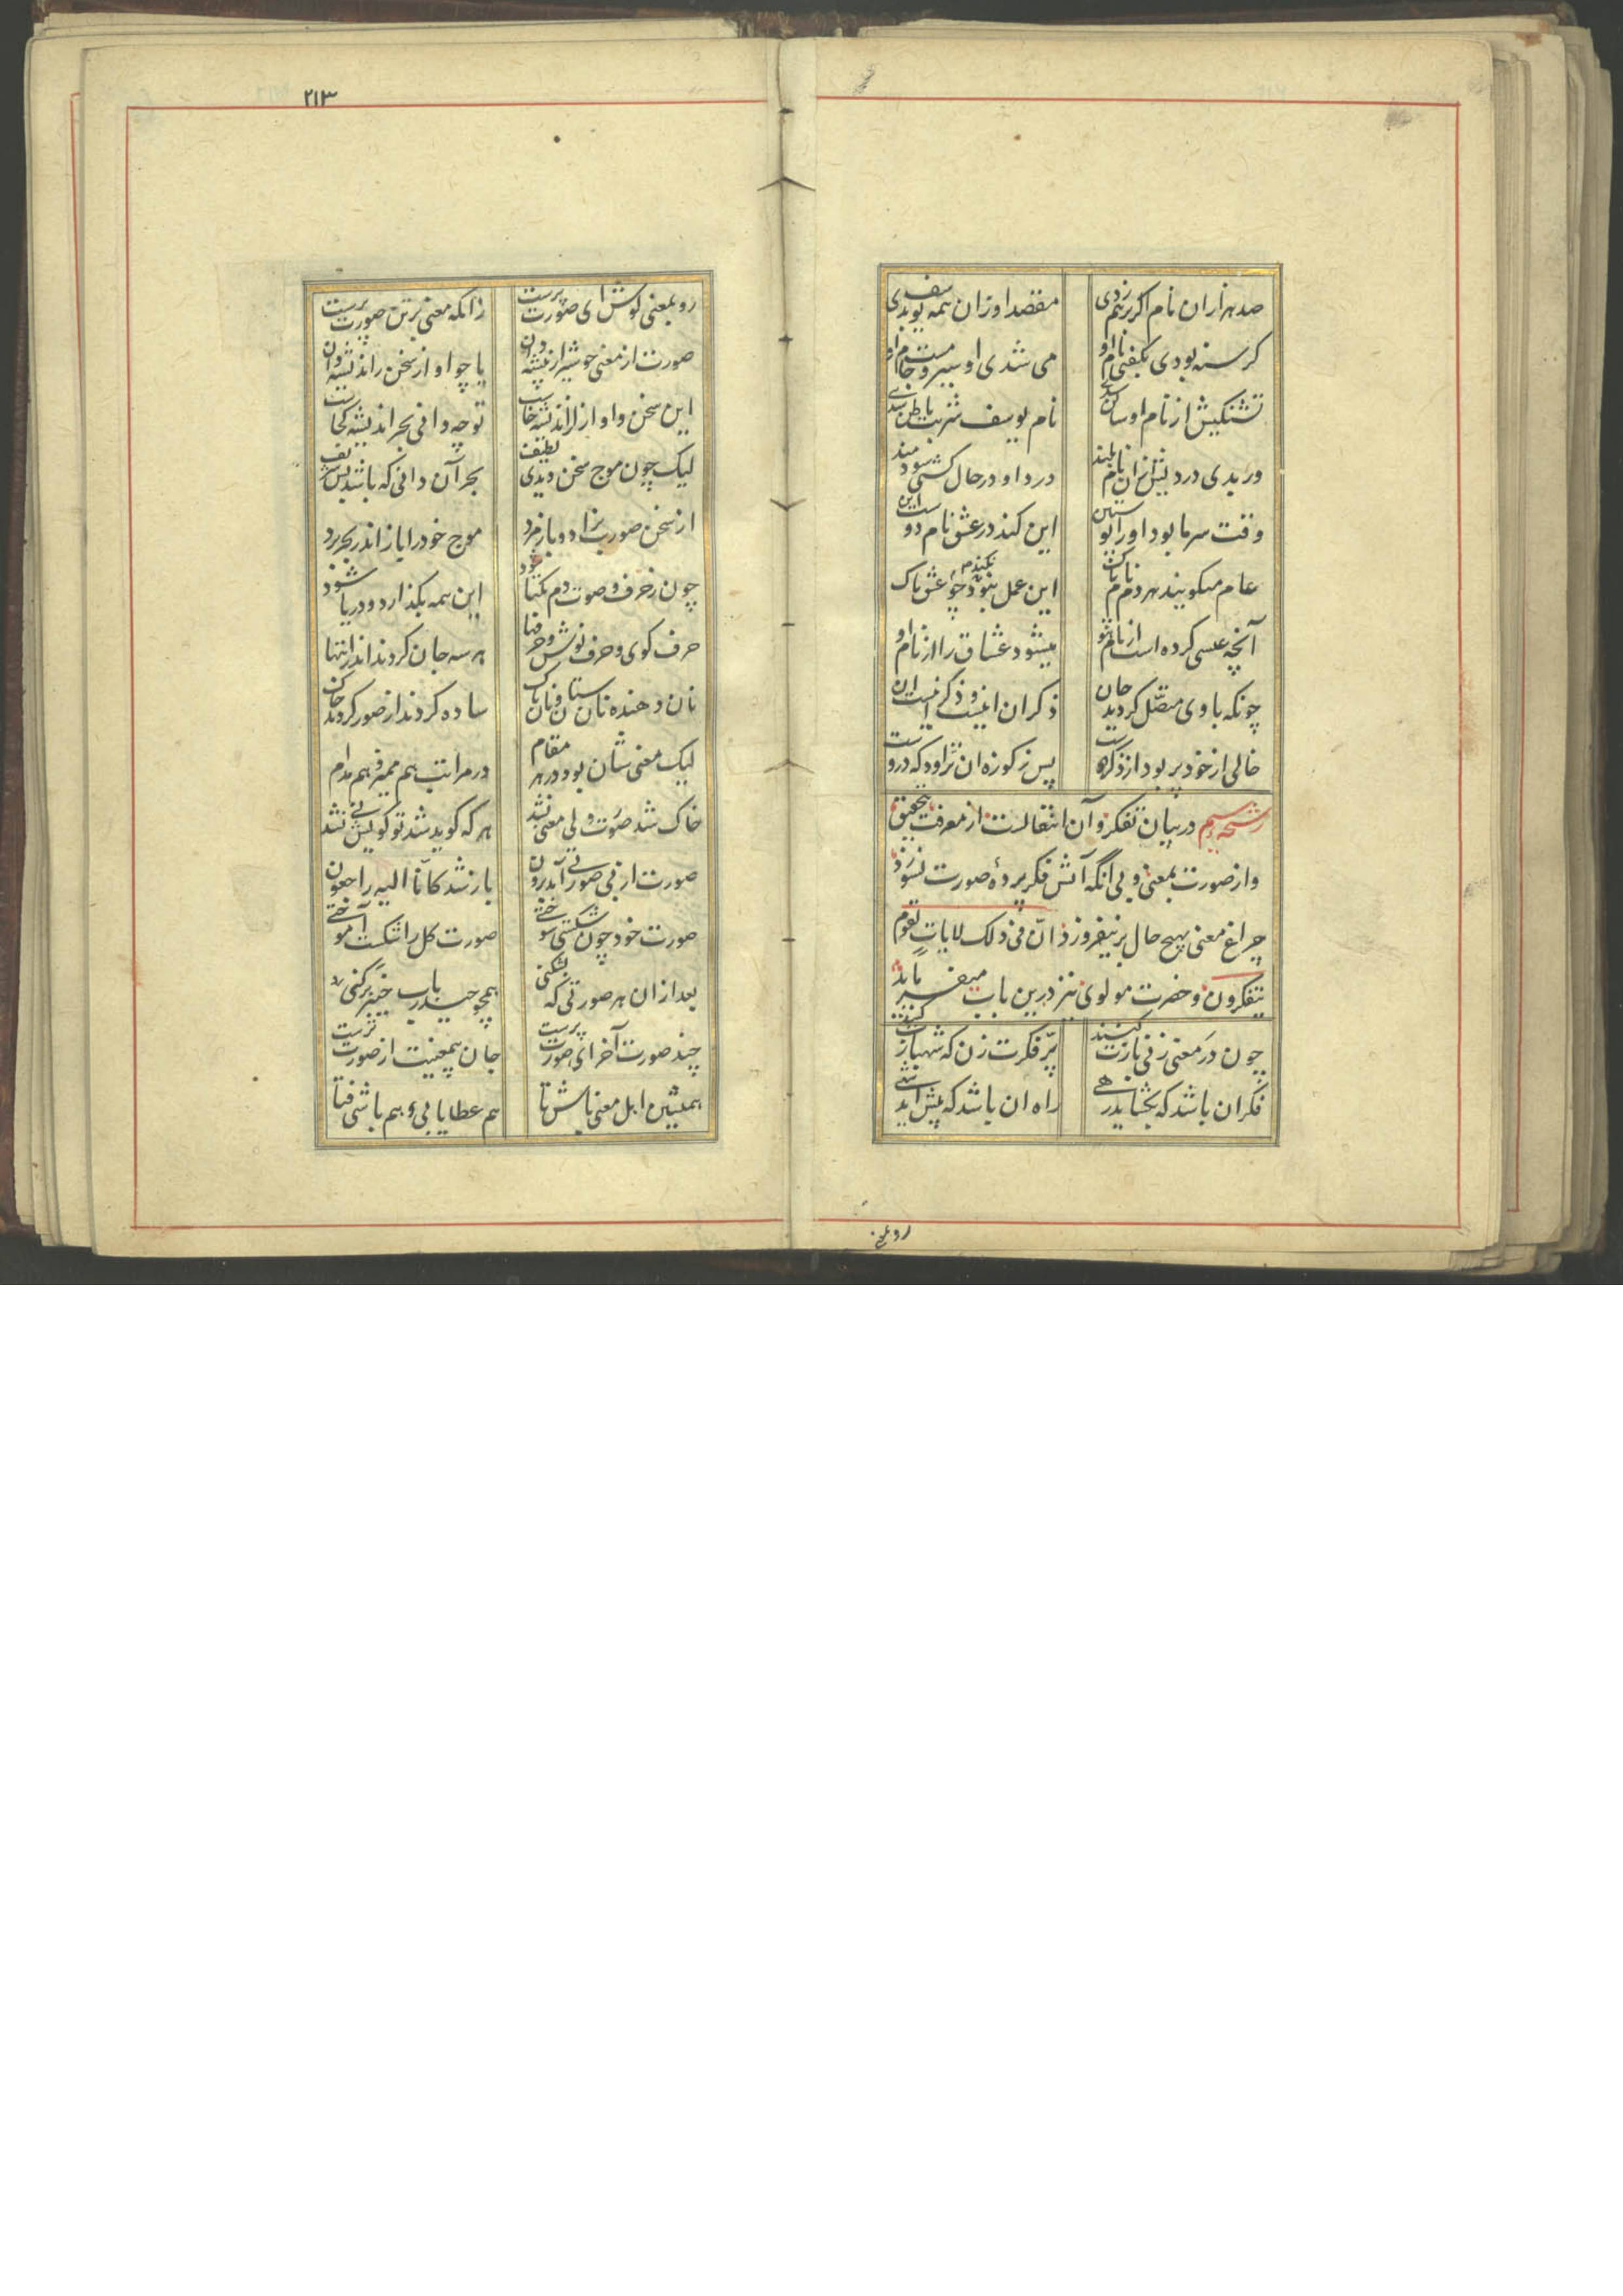 صد هزاران نام اگر برهم زدی	مقصد او زان همه یوسف بدی
گرسنه بودی بگفتی نام او	می شدی او سیر و مست جام او
تشنگیش از نام او ساکن شدی	نام یوسف شربت باطن شدی
ور بدی دردیش زان نام بلند	درد او در حال گشتی سودمند
وقت سرما بود او را پوستین	این کند در عشق نام دوست این
عام میگویند هر دم نام پاک	این عمل نبود چو نکند عشق ناک
آنچه عیسی کرده است از نام هو	میشود عشاق را از نام او
چونکه با وی متصل گردید جان	ذکر ان اینست و ذکر اینست ان
خالی از خود پر بود از ذکر دوست	پس ز کوزه ان تراود که دروست
رشحه سیم در بیان تفکر و آن انتقالست از معرفت بتحقیق
و از صورت بمعنی ولی انگه آتش فکر پردهٔ صورت نسوزد
چراغ معنی بهیچ حال بر نیفروزد ان فی ذلک لایات لقوم
یتفکرون و حضرت مولوی نیز درین باب میفرماید
چون در معنی زنی بازت کنند	پر فکرت زن که شهبازت کنند
فکر ان باشد که بگشاید رهی	راه ان باشد که پیش آید شهی
رو بمعنی
۲۱۳
رو بمعنی کوش ای صورت پرست	زانکه معنی بر تن صورت پرست
صورت از معنی چو شیر از بیشه دان	یا چو اواز سخن ز اندیشه دان
این سخن و اواز از اندیشه خاست	تو چه دانی بحر اندیشه کجاست
لیک چون موج سخن دیدی لطیف	بحر آن دانی که باشد بس شریف
از سخن صورت بزاد و باز مرد	موج خود را باز اندر بحر برد
چون ز حرف و صوت و دم یکتا شود	این همه بگذارد و دریا شود
حرف گوی و حرف نوش و حرفها	هر سه جان گردند اندر انتها
نان دهنده نان ستان و نان پاک	ساده گردند از صور گردند خاک
لیک معنی شان بود در هر مقام	در مراتب هم ممیز هم مدام
خاک شد صورت ولی معنی نشد	هر که گوید شد تو گویش نی نشد
صورت از بی صورتی آمد برون	باز شد کانا الیه راجعون
صورت خود چون شکستی سوختی	صورت کل را شکست آموختی
بعد از ان هر صورتی که بشکنی	همچو حیدر باب خیبر برکنی
چند صورت آخر ای صورت پرست	جان بیمعنیت از صورت نرست
همنشین اهل معنی باش تا	هم عطا یابی و هم باشی فتا